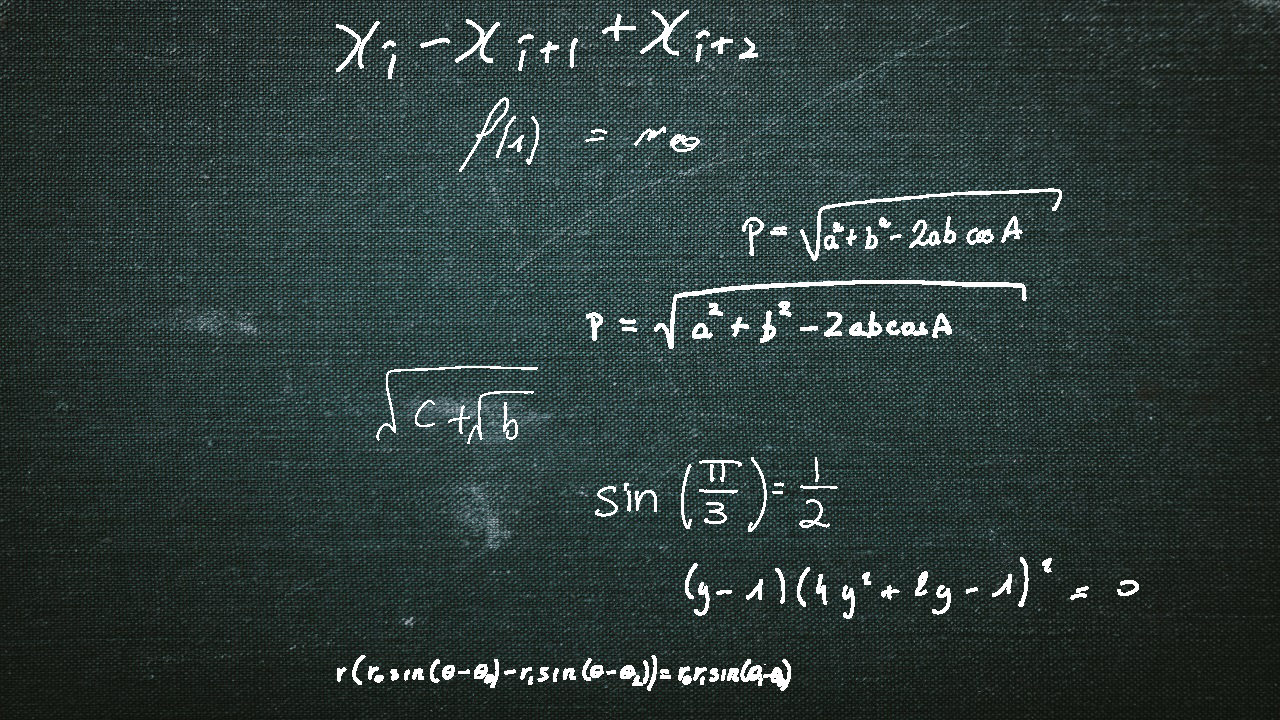 x_i - x_{i+1} + x_{i+2}
f(1) = r_∞
P = √(a² + b² - 2ab cos A)
P = √(a² + b² - 2ab cos A)
√(c + √b)
sin (π/3) = 1/2
(y - 1)(4y² + 2y - 1)² = 0
r(r₀ sin(θ-θ₀) - r₁ sin(θ-θ₂)) = r₀r₁ sin(θ₁-θ₀)